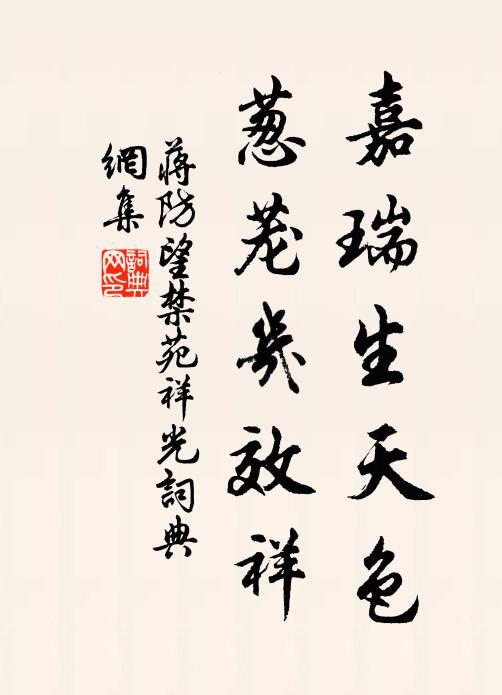 嘉瑞生天色
葱茏几效祥
蒋防望禁苑祥光詞典
網集
詞典
网印